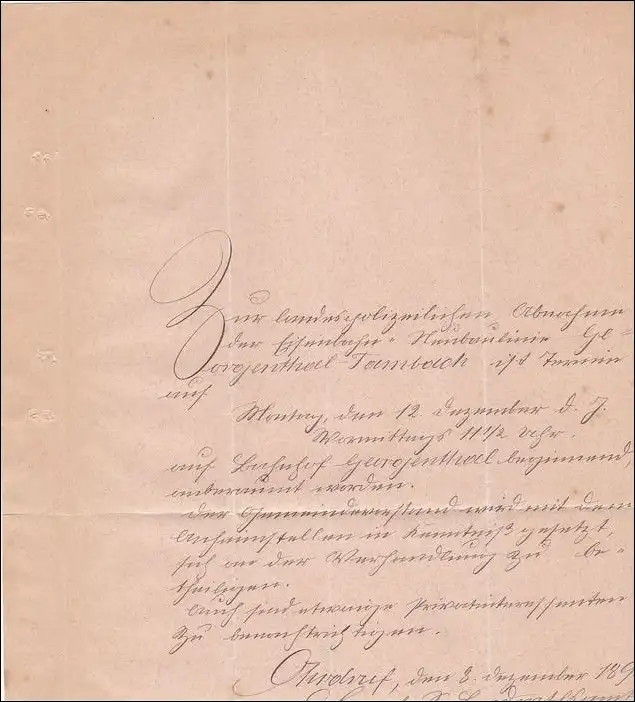 Zur landespolizeilichen Abnahme
der Eisenbahn-Neubaulinie Ge-
orgenthal-Tambach ist Termin
auf
Montag, den 12. Dezember d. J.
Vormittags 11 1/2 Uhr.
auf Bahnhof Georgenthal beginnend,
anberaumt worden.
Der Gemeindevorstand wird mit dem
Anheimstellen in Kenntniß gesetzt,
sich an der Verhandlung zu be-
theiligen.
Auch sind etwaige Privatinteressenten
zu benachrichtigen.
Ohrdruf, den 8. Dezember 189